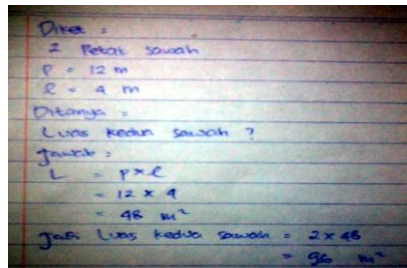 Diket :
2 Petak sawah
P = 12 m
l = 4 m
Ditanya =
Luas kedua sawah ?
Jawab :
L = P x l
= 12 x 4
= 48 m²
Jadi Luas kedua sawah = 2 x 48
= 96 m²